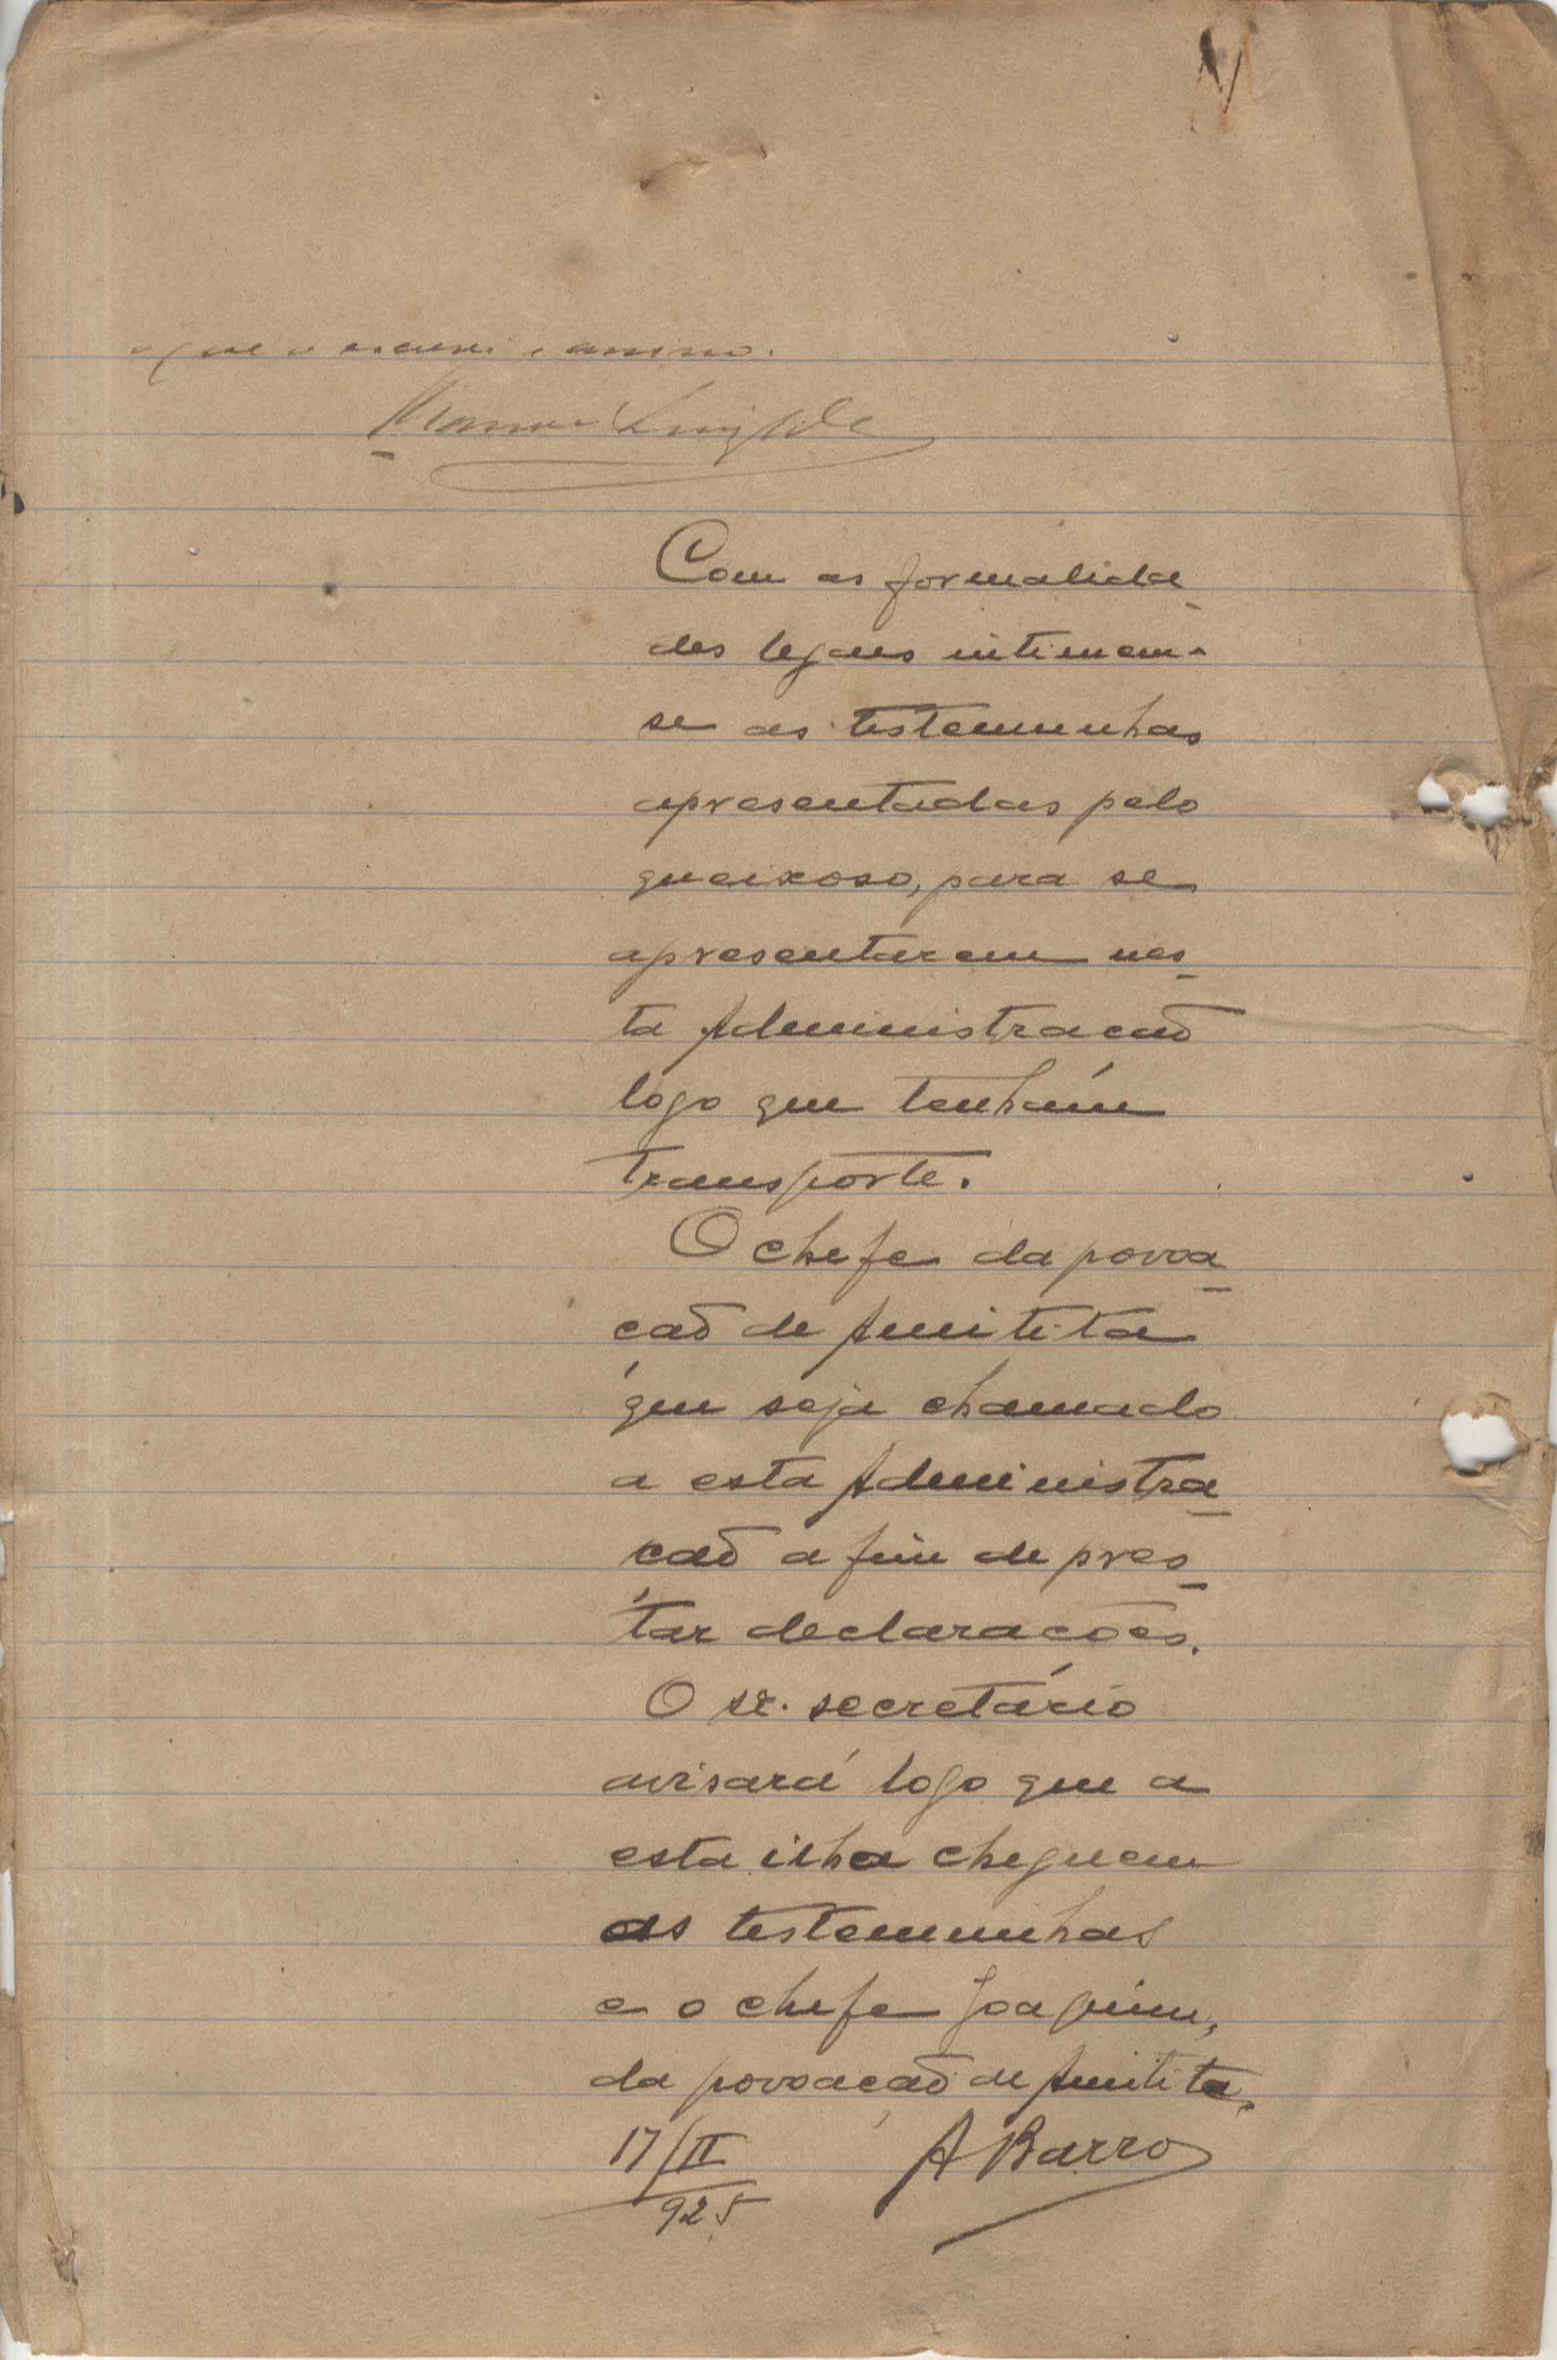 que o escrevi e assino.
Com as formalida
des legaes intimem-
se as testemunhas
apresentadas pelo
queixoso, para se
apresentarem nes-
ta Administração
logo que tenham
transporte.
O chefe da povoa-
ção de Amitite
que seja chamado
a esta Administra-
ção a fim de pres-
tar declarações.
O sr. secretário
avisará logo que a
esta ilha cheguem
as testemunhas
e o chefe Joaquim,
da povoação de
17/II
925
A Barros